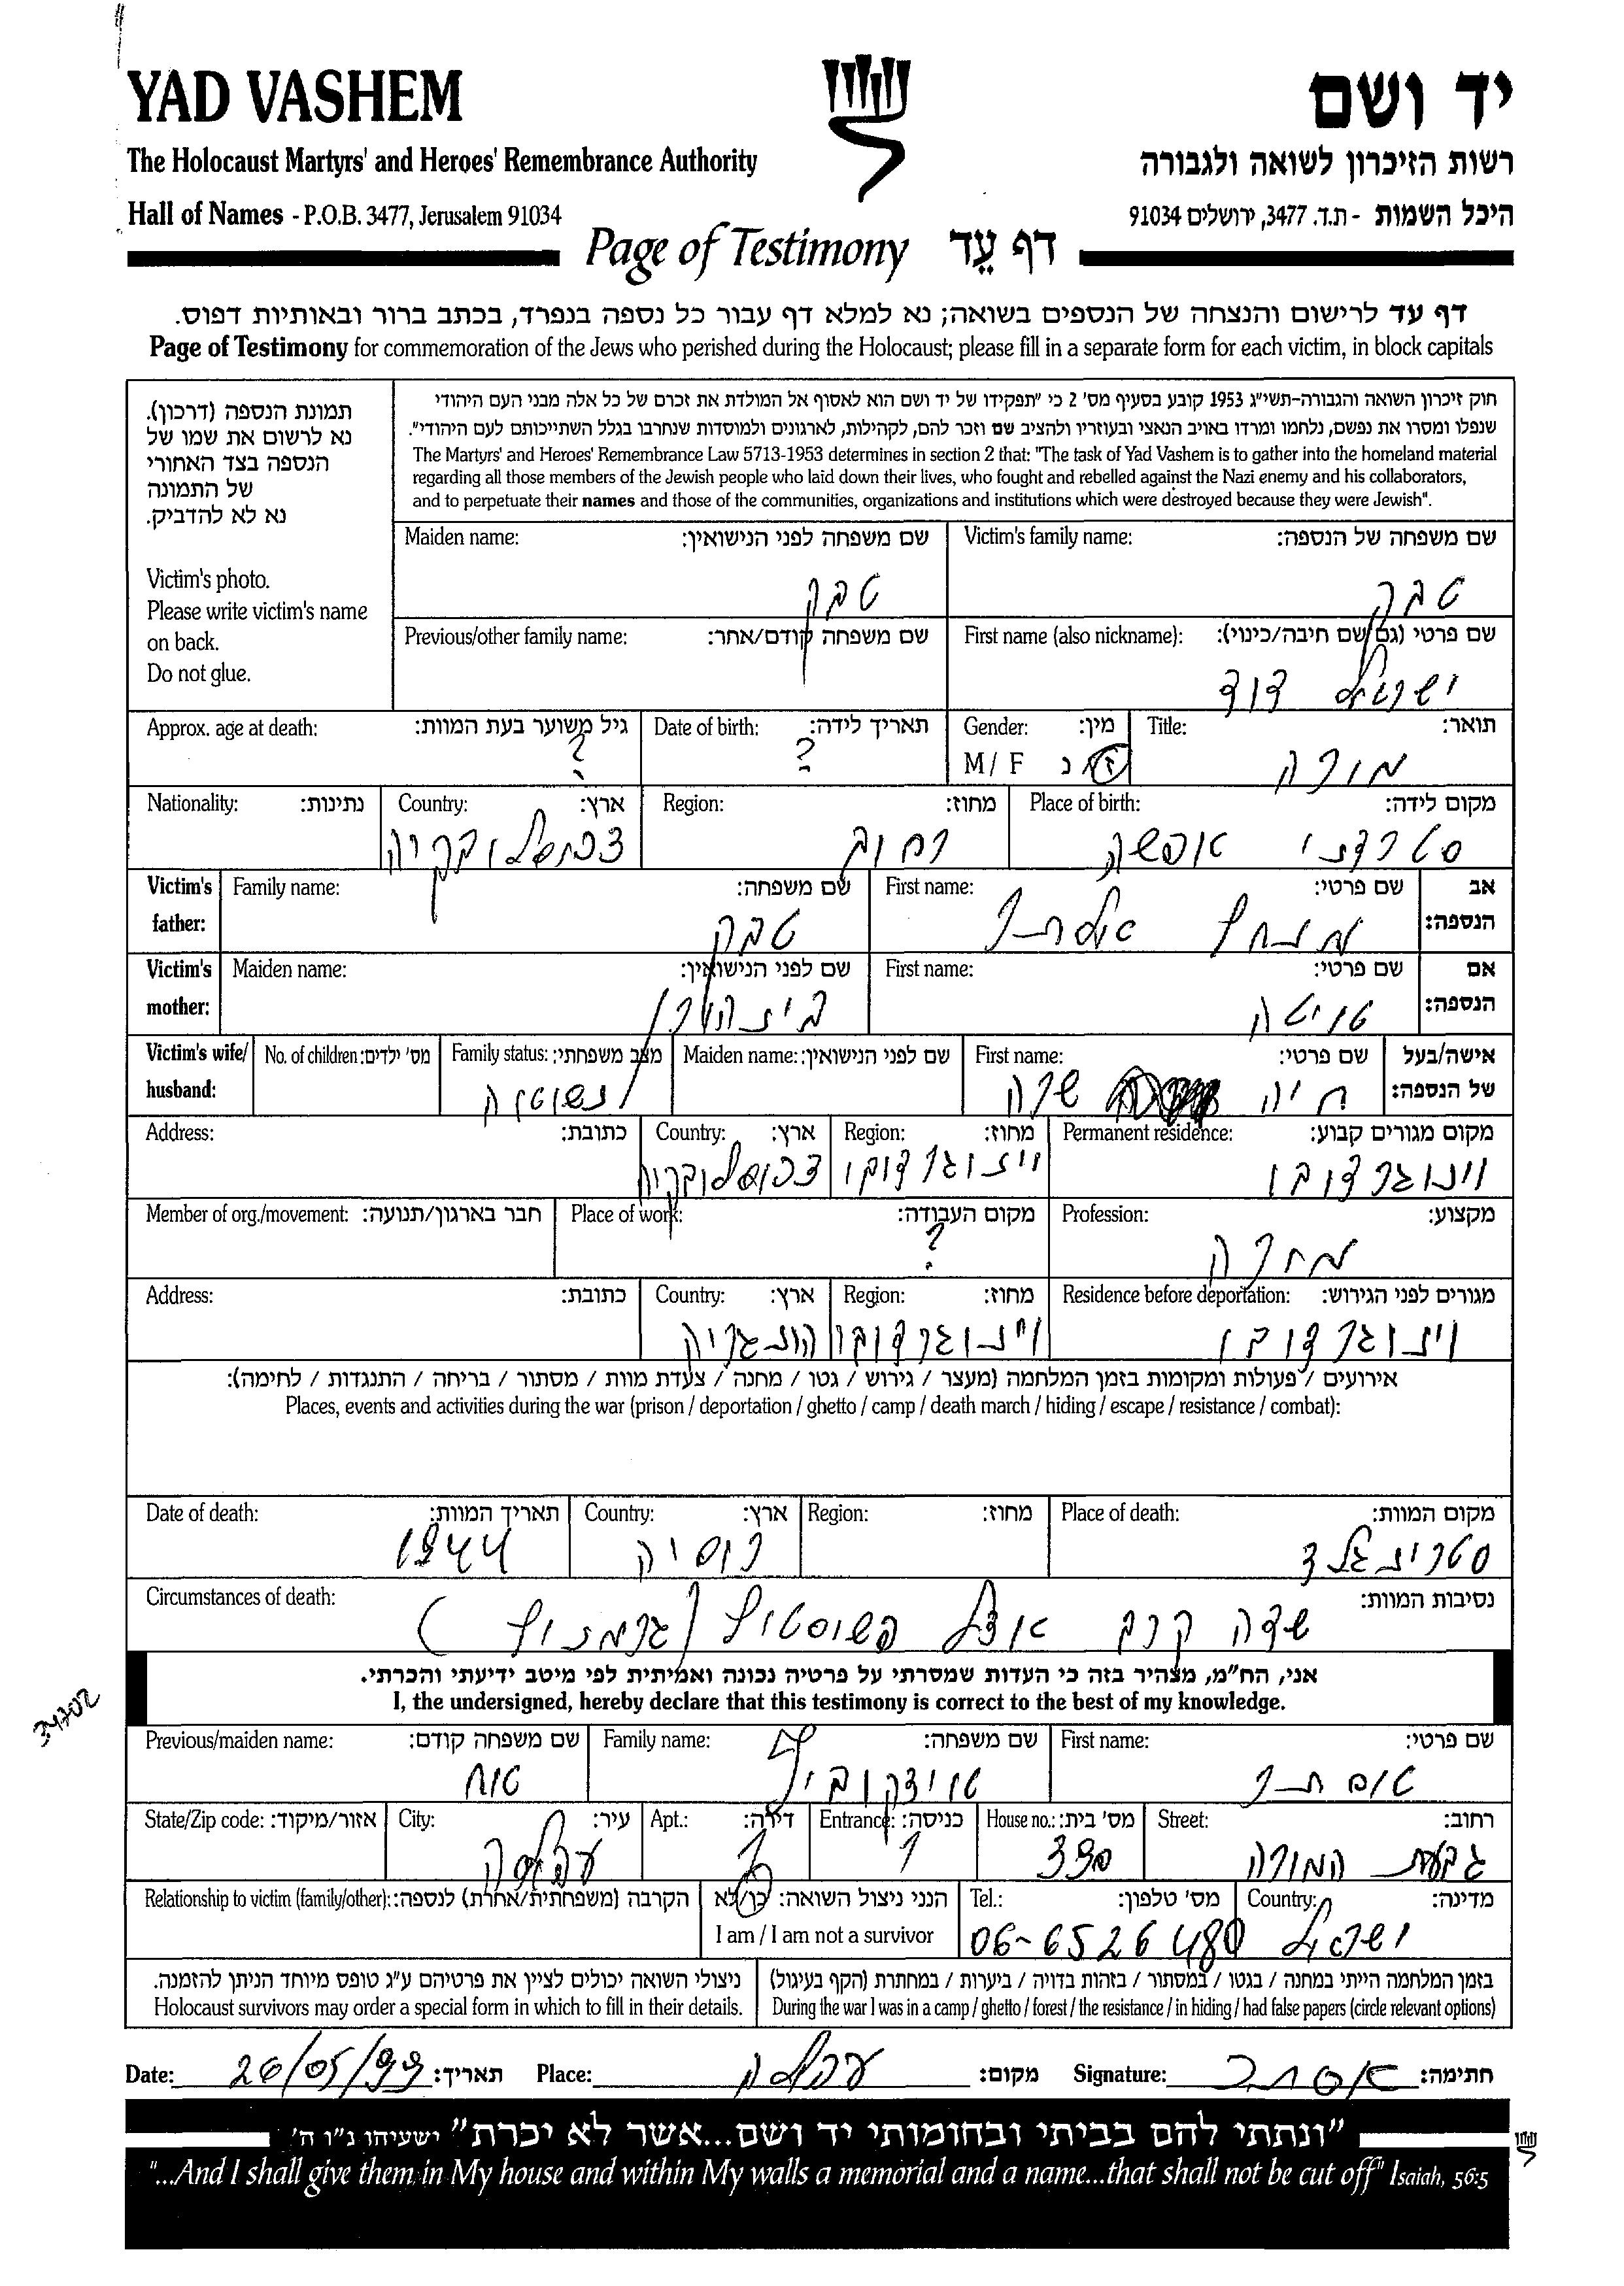 YAD VASHEM
יד ושם
The Holocaust Martyrs' and Heroes' Remembrance Authority
רשות הזיכרון לשואה ולגבורה
Hall of Names - P.O.B. 3477, Jerusalem 91034
היכל השמות - ת.ד. 3477, ירושלים 91034
Page of Testimony דף עֵד
דף עד לרישום והנצחה של הנספים בשואה; נא למלא דף עבור כל נספה בנפרד, בכתב ברור ובאותיות דפוס.
Page of Testimony for commemoration of the Jews who perished during the Holocaust; please fill in a separate form for each victim, in block capitals
תמונת הנספה (דרכון).
נא לרשום את שמו של
הנספה בצד האחורי
של התמונה
נא לא להדביק.
Victim's photo.
Please write victim's name
on back.
Do not glue.
חוק זיכרון השואה והגבורה-תשי"ג 1953 קובע בסעיף מס' 2 כי "תפקידו של יד ושם הוא לאסוף אל המולדת את זכרם של כל אלה מבני העם היהודי
שנפלו ומסרו את נפשם, נלחמו ומרדו באויב הנאצי ובעוזריו ולהציב שם וזכר להם, לקהילות, לארגונים ולמוסדות שנחרבו בגלל השתייכותם לעם היהודי".
The Martyrs' and Heroes' Remembrance Law 5713-1953 determines in section 2 that: "The task of Yad Vashem is to gather into the homeland material
regarding all those members of the Jewish people who laid down their lives, who fought and rebelled against the Nazi enemy and his collaborators,
and to perpetuate their names and those of the communities, organizations and institutions which were destroyed because they were Jewish".
Victim's family name: שם משפחה של הנספה:
טבק
Maiden name: שם משפחה לפני הנישואין:
טבק
First name (also nickname): שם פרטי (גם שם חיבה/כינוי):
ישראל דוד
Previous/other family name: שם משפחה קודם/אחר:
Title: תואר:
מורה
Gender: מין:
M / F ז / נ
Date of birth: תאריך לידה:
?
Approx. age at death: גיל משוער בעת המוות:
?
Place of birth: מקום לידה:
Region: מחוז:
רחוב
Country: ארץ:
צכוסלובקיה
Nationality: נתינות:
Victim's father: אב הנספה:
First name: שם פרטי:
מנחם
Family name: שם משפחה:
טבק
Victim's mother: אם הנספה:
First name: שם פרטי:
Maiden name: שם לפני הנישואין:
Victim's wife/ husband: אישה/בעל של הנספה:
First name: שם פרטי:
חיה שרה
Maiden name: שם לפני הנישואין:
Family status: מצב משפחתי:
No. of children: מס' ילדים:
Permanent residence: מקום מגורים קבוע:
וינוגרדובו
Region: מחוז:
וינוגרדובו
Country: ארץ:
צכוסלובקיה
Address: כתובת:
Profession: מקצוע:
מורה
Place of work: מקום העבודה:
?
Member of org./movement: חבר בארגון/תנועה:
Residence before deportation: מגורים לפני הגירוש:
וינוגרדובו
Region: מחוז:
וינוגרדובו
Country: ארץ:
הונגריה
Address: כתובת:
אירועים / פעולות ומקומות בזמן המלחמה (מעצר / גירוש / גטו / מחנה / צעדת מוות / מסתור / בריחה / התנגדות / לחימה):
Places, events and activities during the war (prison / deportation / ghetto / camp / death march / hiding / escape / resistance / combat):
Place of death: מקום המוות:
Region: מחוז:
Country: ארץ:
רוסיה
Date of death: תאריך המוות:
1944
Circumstances of death: נסיבות המוות:
שדה קרב אצל
אני, הח"מ, מצהיר בזה כי העדות שמסרתי על פרטיה נכונה ואמיתית לפי מיטב ידיעתי והכרתי.
I, the undersigned, hereby declare that this testimony is correct to the best of my knowledge.
34702
First name: שם פרטי:
Family name: שם משפחה:
Previous/maiden name: שם משפחה קודם:
Street: רחוב:
גבעת המורה
House no.: מס' בית:
330
Entrance: כניסה:
1
Apt.: דירה:
City: עיר:
עפולה
State/Zip code: אזור/מיקוד:
Country: מדינה:
ישראל
Tel.: מס' טלפון:
06-6526480
הנני ניצול השואה: כן/לא
I am / I am not a survivor
Relationship to victim (family/other): הקרבה (משפחתית/אחרת) לנספה:
בזמן המלחמה הייתי במחנה / בגטו / במסתור / בזהות בדויה / ביערות / במחתרת (הקף בעיגול)
During the war I was in a camp / ghetto / forest / the resistance / in hiding / had false papers (circle relevant options)
ניצולי השואה יכולים לציין את פרטיהם ע"ג טופס מיוחד הניתן להזמנה.
Holocaust survivors may order a special form in which to fill in their details.
Date: 26/05/99 תאריך: Place: עפולה מקום: Signature: חתימה:
"ונתתי להם בביתי ובחומותי יד ושם...אשר לא יכרת" ישעיהו נ"ו ה'
"...And I shall give them in My house and within My walls a memorial and a name...that shall not be cut off" Isaiah, 56:5